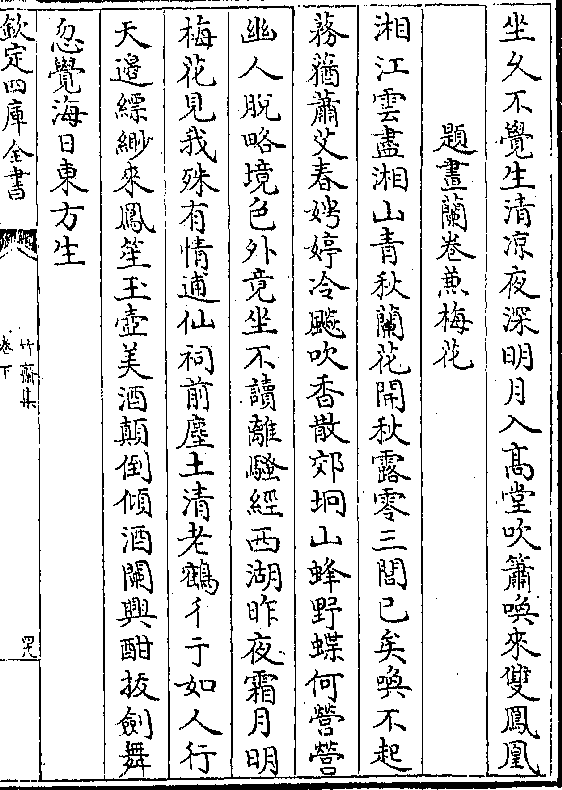 坐久不覺生清凉夜深明月入髙堂吹簫喚來雙鳳凰
題畫蘭卷兼梅花
湘江雲盡湘山青秋蘭花開秋露零三閭已矣喚不起
蕣蕕蕭艾春娉婷冷飇吹香散郊坰山蜂野蝶何營營
幽人脫略境色外竟坐不讀離騷經西湖昨夜霜月明
梅花見我殊有情逋仙祠前塵土清老鶴彳亍如人行
天邉縹緲來鳳笙玉壺美酒顛倒傾酒闌興酣拔劍舞
忽覺海日東方生
欽定四庫全書
竹齋集
卷下
罕九